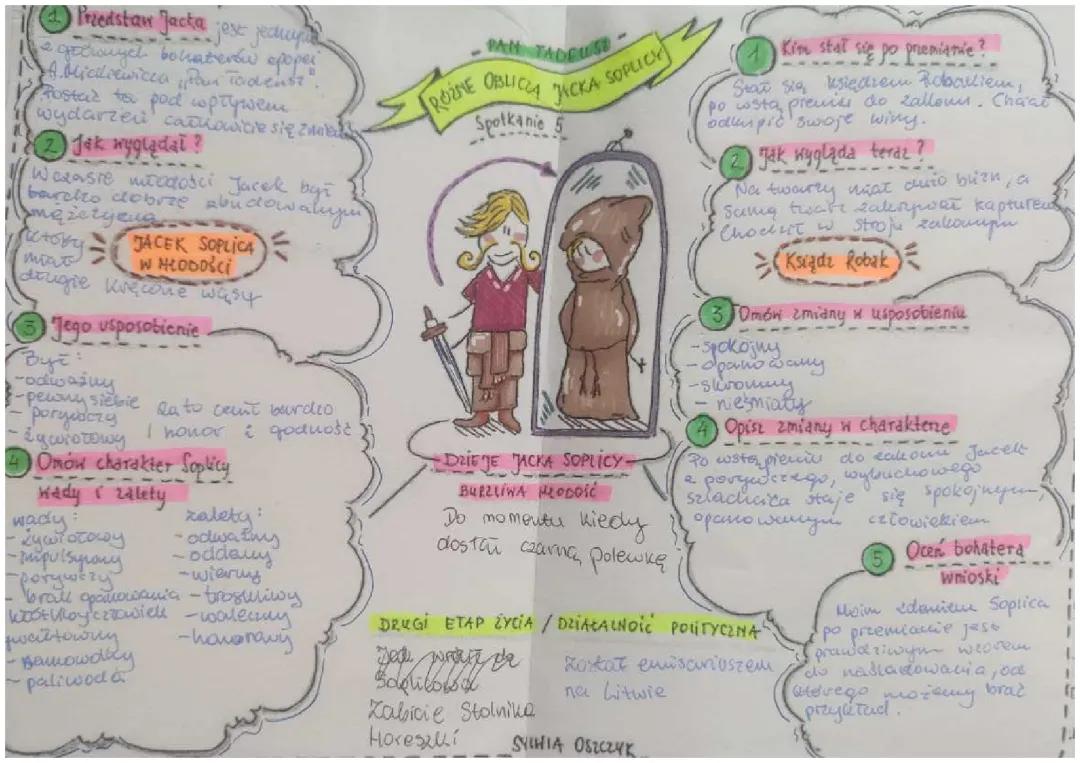 1 Przedstaw Jacka jest jednym
z głównych bohaterów epopei
A. Mickiewicza "Pan Tadeusz".
Postać ta pod wpływem
wydarzeń całkowicie się zmienia
2 Jak wyglądał?
W czasie młodości Jacek był
bardzo dobrze zbudowanym
mężczyzną
który
miał
długie kręcone wąsy
JACEK SOPLICA
W MŁODOŚCI
3 Jego usposobienie
Był:
- odważny
- pewny siebie
- porywczy Za to cenił bardzo
- żywiołowy honor i godność
4 Omów charakter Soplicy
wady i zalety
wady: zalety:
- żywiołowy - odważny
- impulsywny - oddany
- porywczy - wierny
- brak opanowania - troskliwy
kłótliwy człowiek - waleczny
gwałtowny - honorowy
- samowolny
- paliwoda
- PAN TADEUSZ -
RÓŻNE OBLICZA JACKA SOPLICY
Spotkanie 5
- DZIEJE JACKA SOPLICY -
BURZLIWA MŁODOŚĆ
Do momentu kiedy
dostał czarną polewkę
DRUGI ETAP ŻYCIA / DZIAŁALNOŚĆ POLITYCZNA
Zabicie Stolnika
Horeszki
Został emisariuszem
na Litwie
SYLWIA OSZCZYK
1 Kim stał się po przemianie?
Stał się księdzem Robakiem,
po wstąpieniu do zakonu. Chciał
odkupić swoje winy.
2 Jak wygląda teraz?
Na twarzy miał dużo blizn, a
samą twarz zakrywał kapturem
Chodził w stroju zakonnym
Ksiądz Robak
3 Omów zmiany w usposobieniu
- spokojny
- opanowany
- skromny
- nieśmiały
4 Opisz zmiany w charakterze
Po wstąpieniu do zakonu Jacek
z porywczego, wybuchowego
szlachcica staje się spokojnym,
opanowanym człowiekiem
5 Oceń bohatera
wnioski
Moim zdaniem Soplica
po przemianie jest
prawdziwym wzorem
do naśladowania, od
którego możemy brać
przykład.